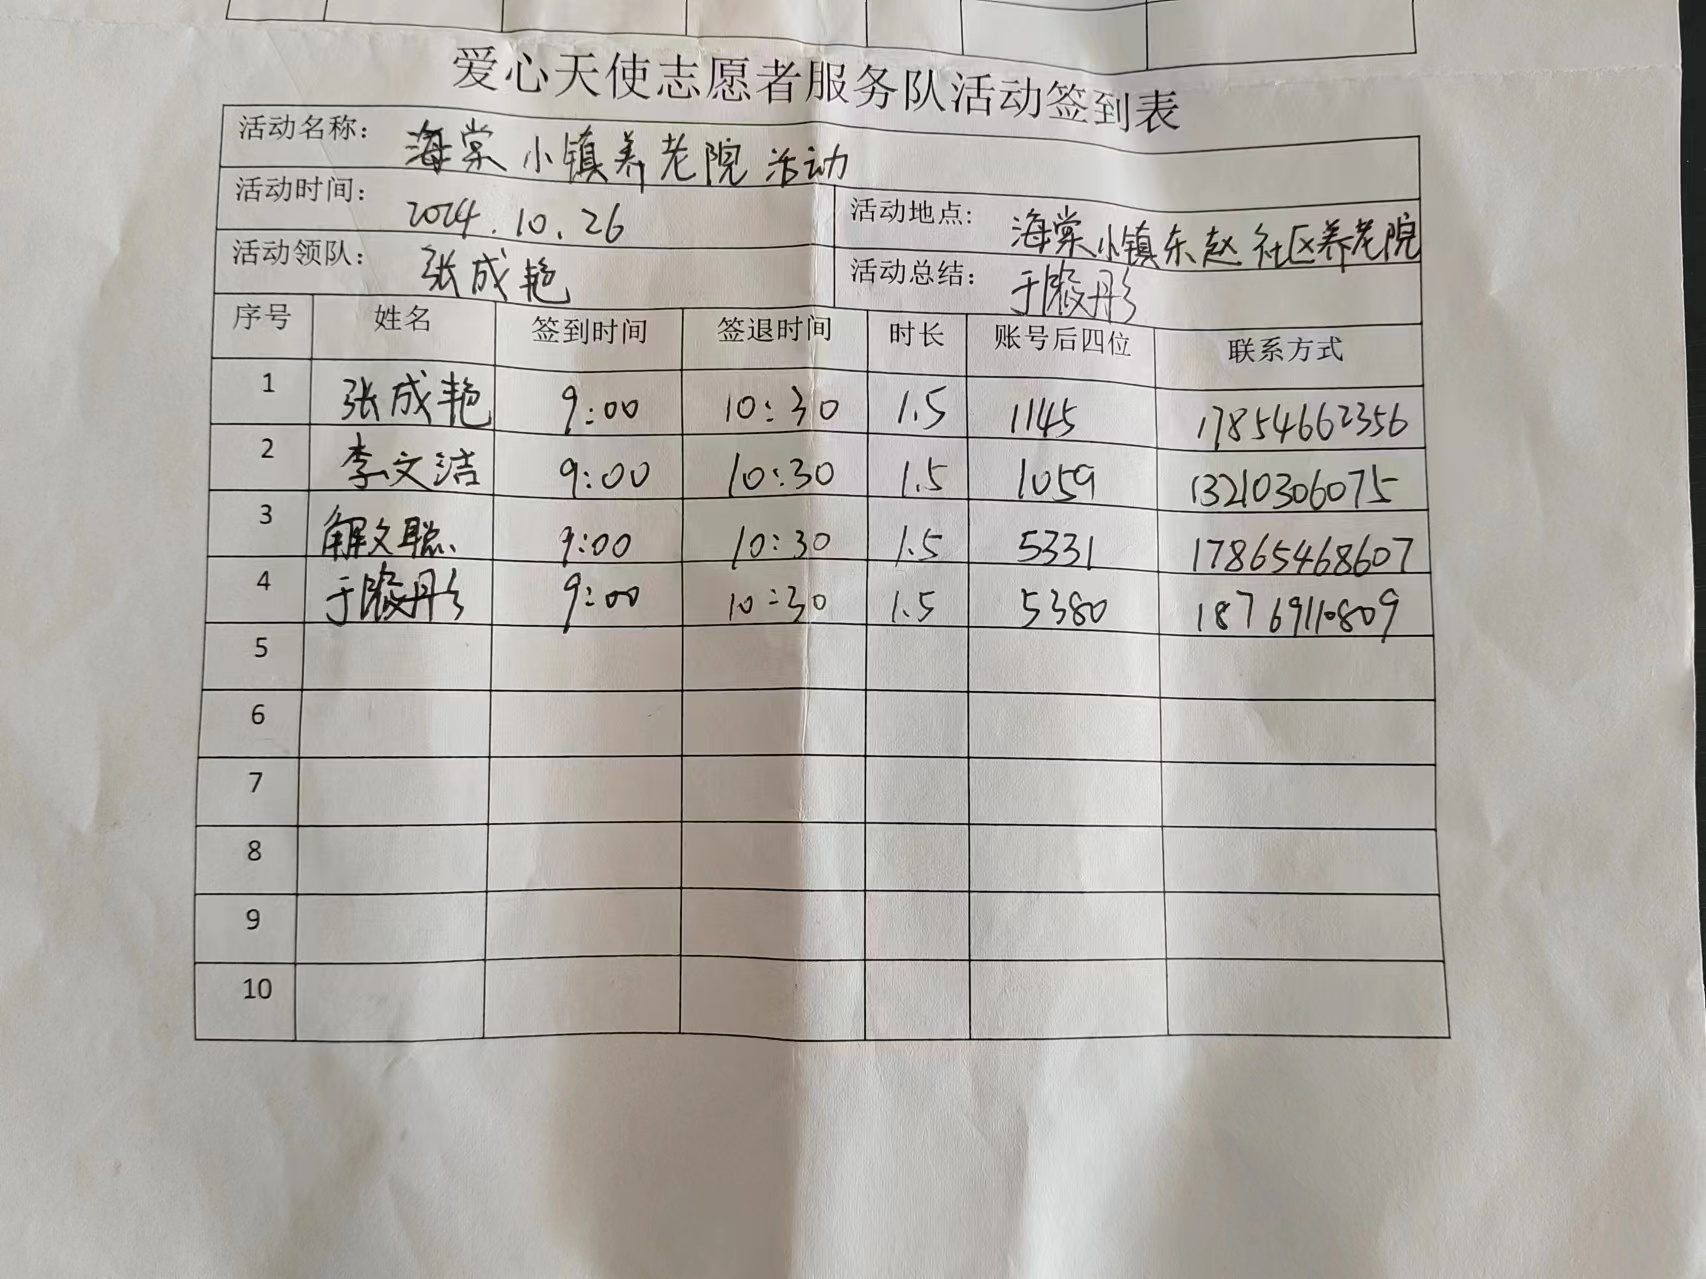 爱心天使志愿者服务队活动签到表
活动名称: 海棠小镇养老院活动
活动时间: 2024.10.26 活动地点: 海棠小镇东赵社区养老院
活动领队: 张成艳 活动总结: 于
序号 姓名 签到时间 签退时间 时长 账号后四位 联系方式
1 张成艳 9:00 10:30 1.5 1145 17854662356
2 李文洁 9:00 10:30 1.5 1059 13210306075
3 解文聪 9:00 10:30 1.5 5331 17865468607
4 于 9:00 10:30 1.5 5380 18769110809
5
6
7
8
9
10